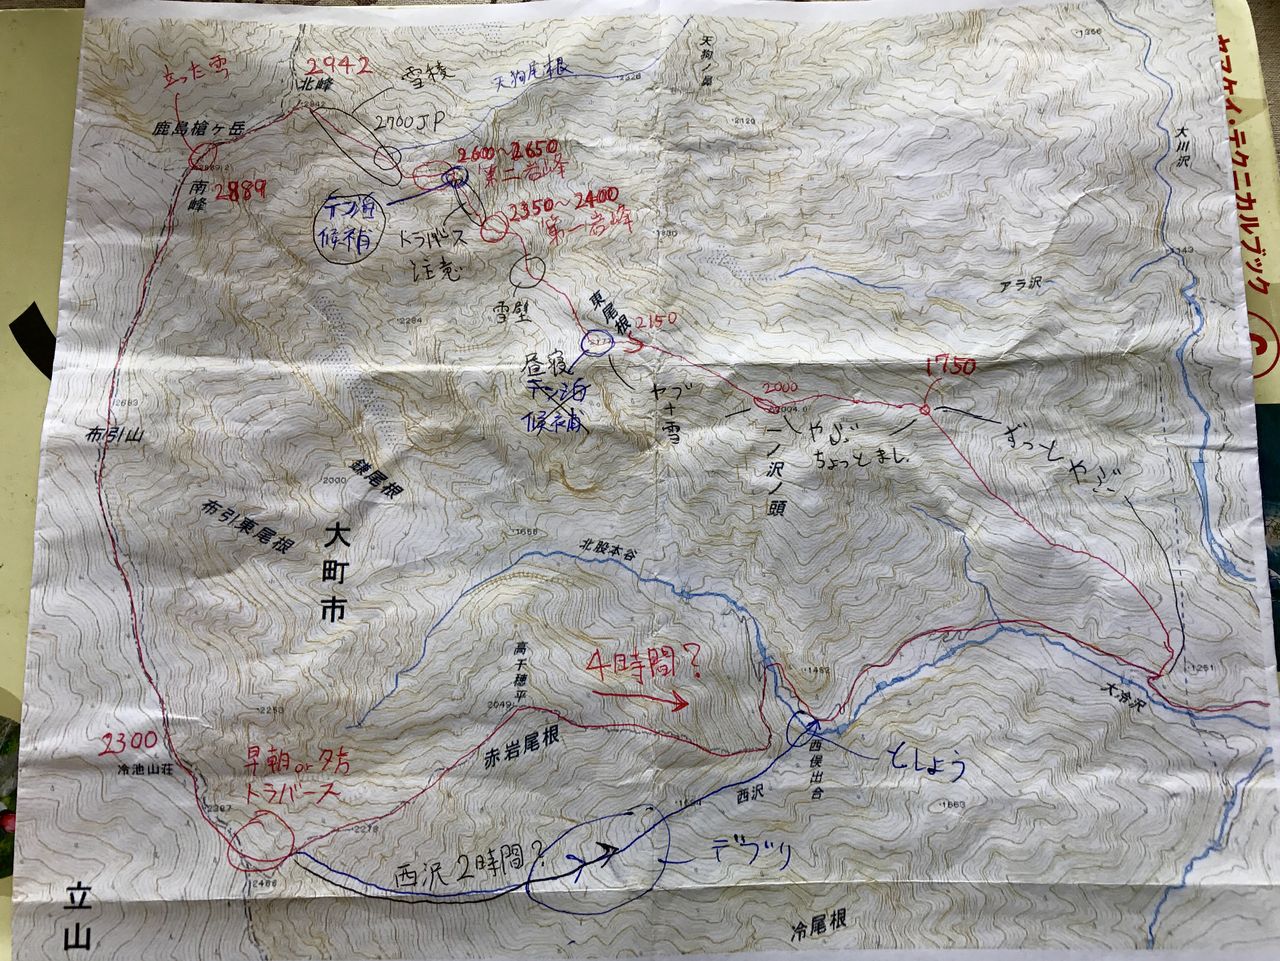 立った雪
2942
北峰
雪稜
天狗尾根
天狗ノ鼻
1366
ヤマケイ・テクニカルブック
2700JP
2120
鹿島槍ヶ岳
大川沢
2600〜2650
第二岩峰
南峰
2889
テン泊
候補
トラバース
注意
2350〜2400
第一岩峰
雪壁
アラ沢
2284
東尾根
2150
昼寝
テン泊
候補
ヤブ+雪
2000
1750
一ノ沢ノ頭
やぶ
ちょっとまし
ずっとやぶ
2683
布引山
鎌尾根
2000
布引東尾根
大町市
1658
北股本谷
高千穂平
2049
4時間?
2253
1251
大冷沢
2300
冷池山荘
早朝or夕方
トラバース
赤岩尾根
としょう
西俣出合
西沢
1663
2278
西沢2時間?
デブリ
2466
立山
冷尾根